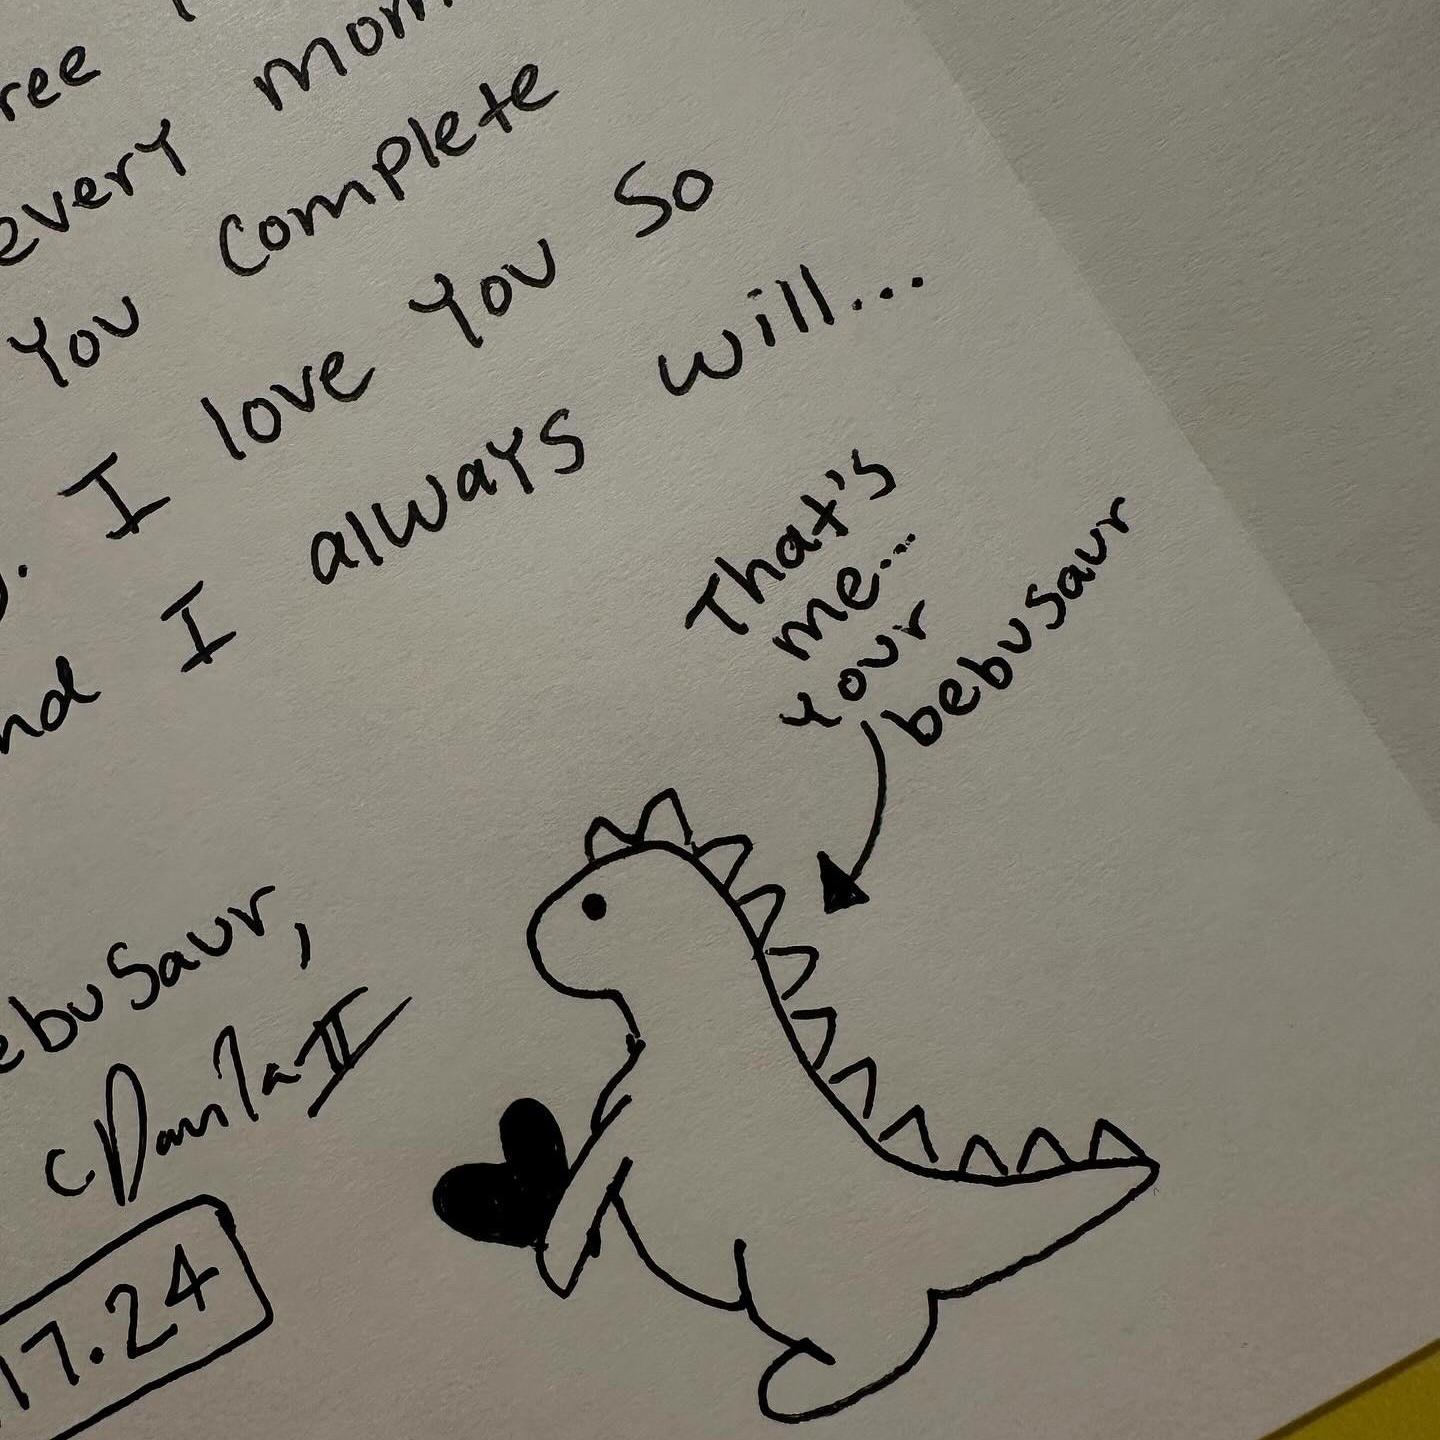 ree
every mom
You complete
I love You So
nd I always will...
That's
me...
Your
bebusaur
ebusaur,
II
17.24